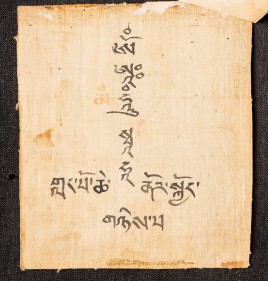 ཨོཾ
ཨཱཿ
ཧཱུྃ
སྭཱ
ཧཱ
གླང་པོ་ཆེ་ ནོར་སྐྱོང་
གཉིས་པ